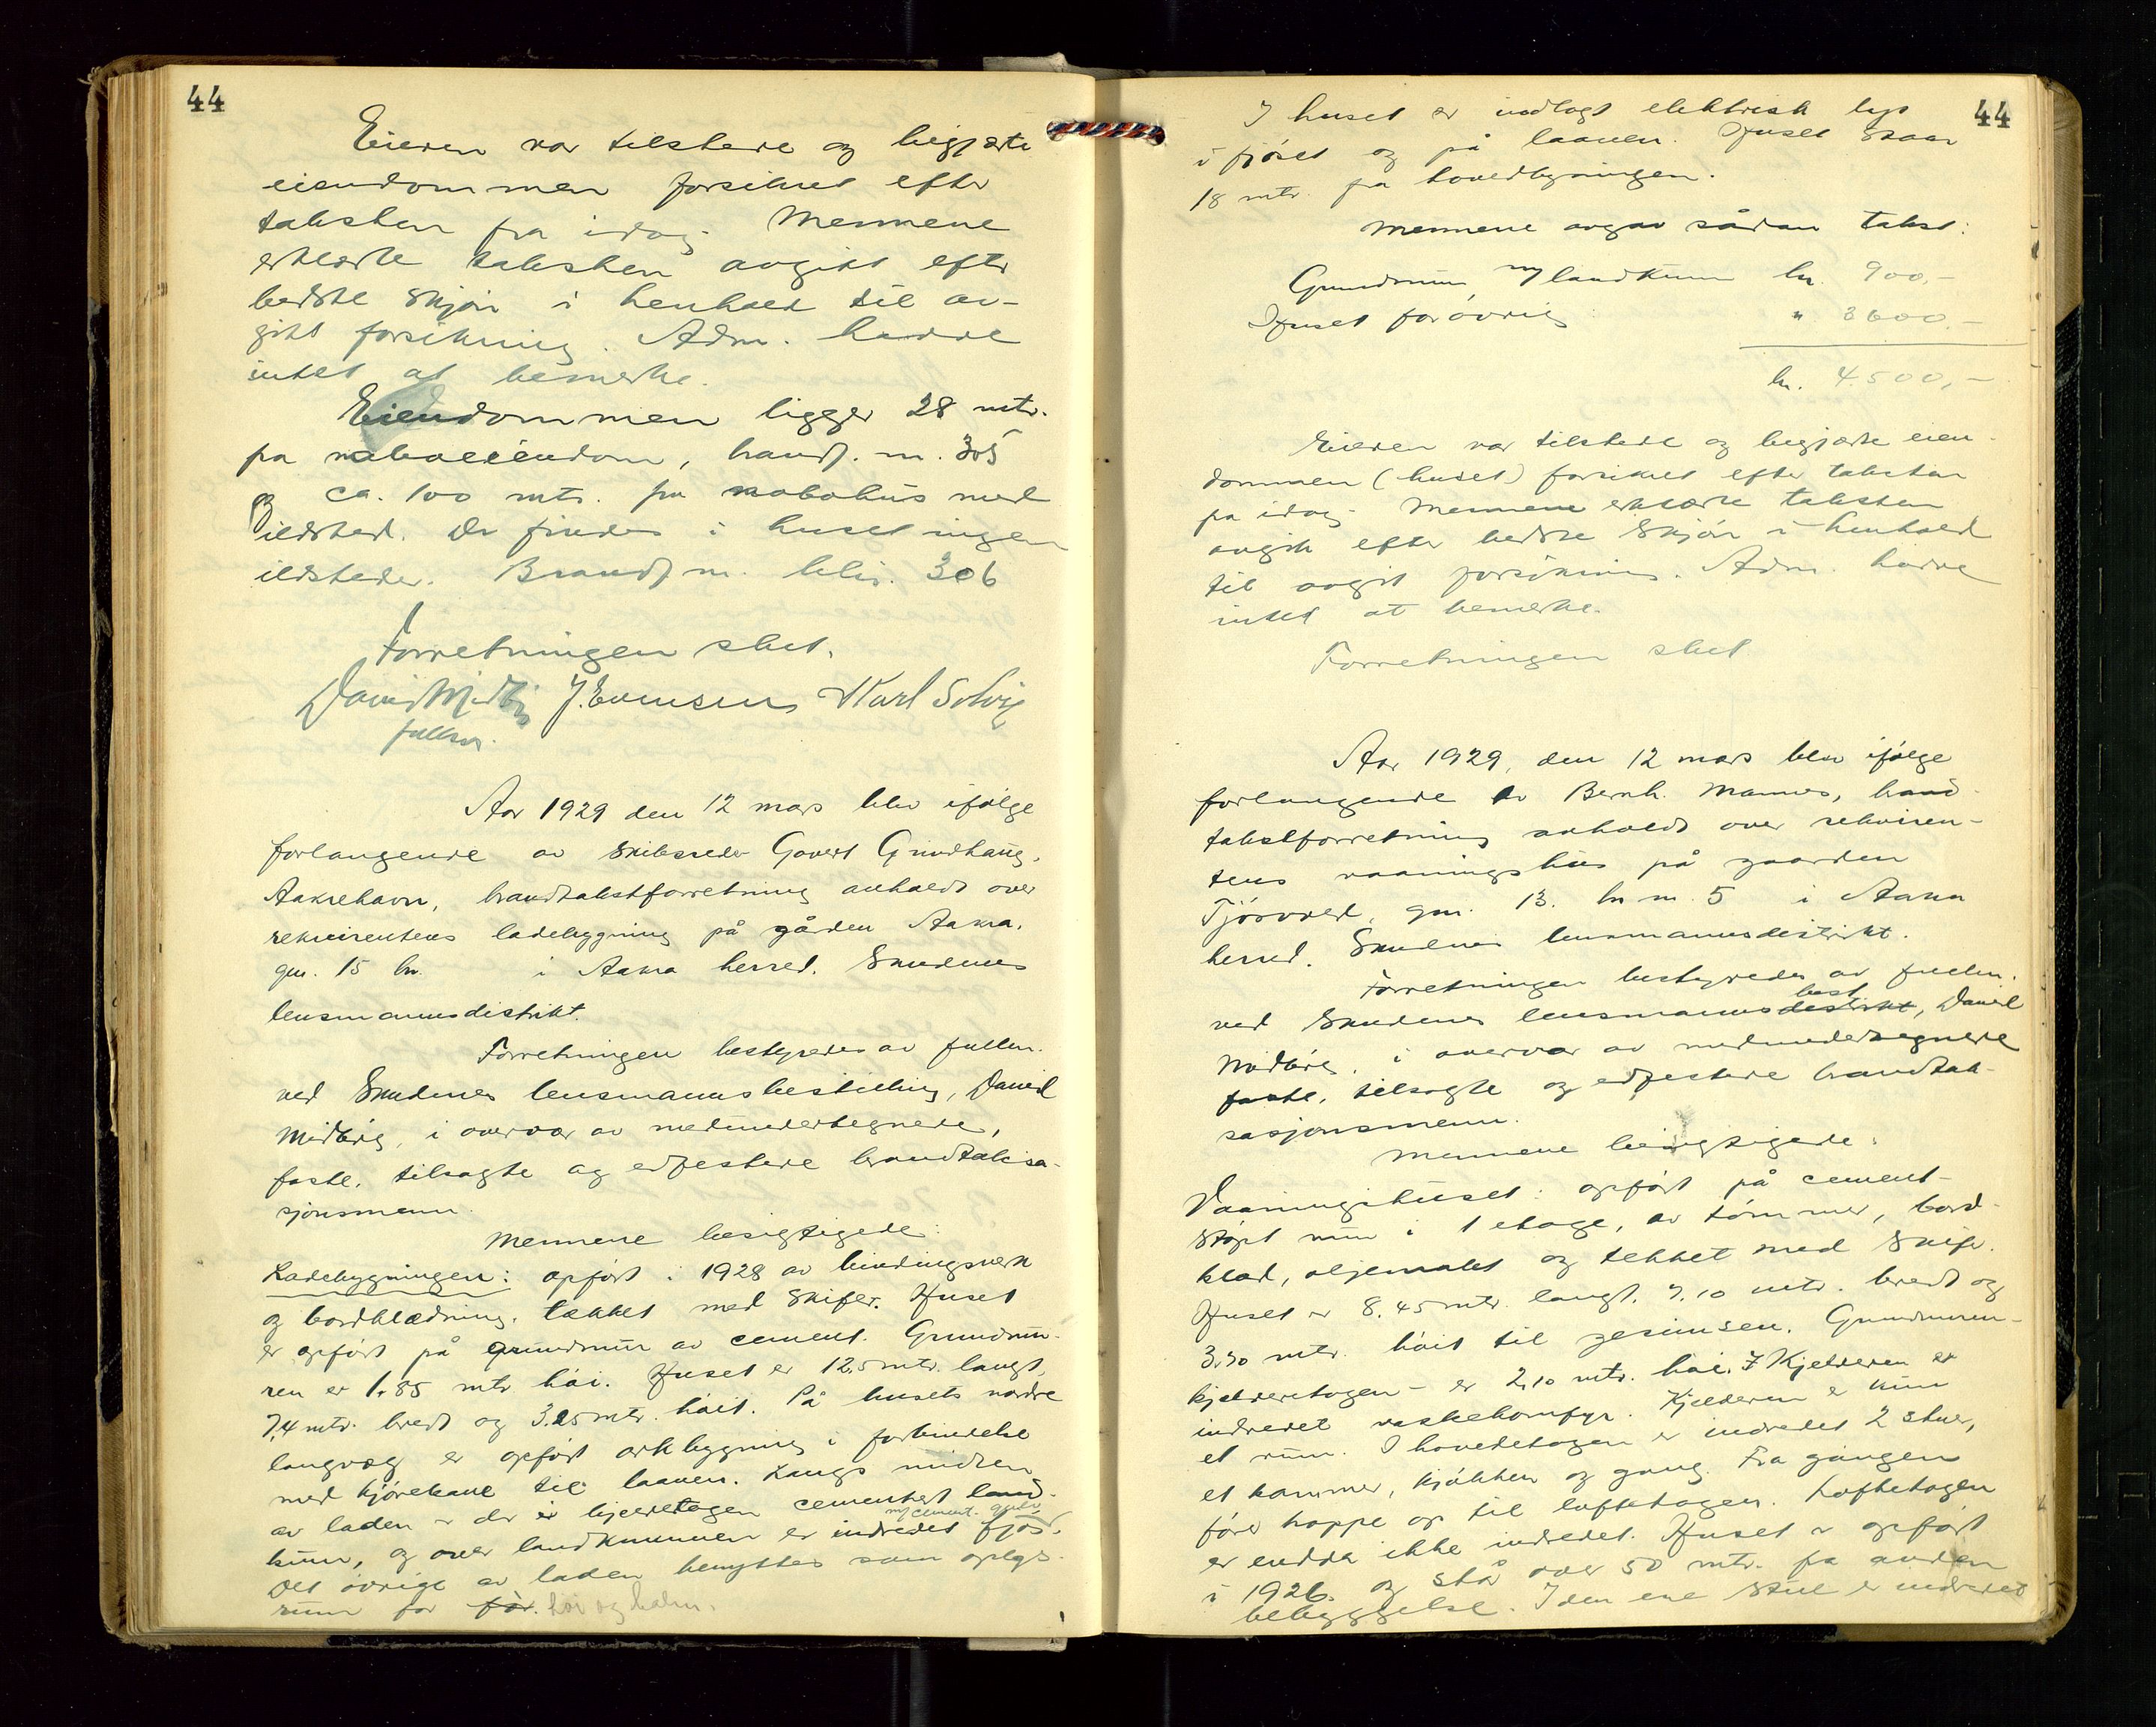 44
Eieren var tilstede og begjærte
eiendommen forsikret efter
taksten fra idag. Mennene
erklærte taksten avgitt efter
bedste skjøn i henhold til av-
gitt forsikring. Adm. hadde
intet at bemerke.
Eiendommen ligger 28 mtr.
fra naboeiendom, brandf. nr. 305
og ca. 100 mtr. fra nabohus med
ildsted. Der findes i huset ingen
ildsteder. Brandf nr. blir. 306
Forretningen slut.
David Midbøe J. Evensen Karl Solvig
fullm.
Aar 1929 den 12 mars blev ifølge
forlangende av skibsreder Govert Grindhaug,
Aakrehavn, brandtakstforretning avholdt over
rekvirentens ladebygning på gården Aakra,
gnr. 15 bn. i Aakra herred. Skudenes
lensmannsdistrikt.
Forretningen bestyredes av fullm.
ved Skudenes lensmannsbestilling, David
Midbøe, i overvær av medundertegnede,
faste, tilsagte og edfestede brandtaksa-
sjonsmenn.
Mennene besigtigede:
Ladebygningen: opført i 1928 av bindingsverk
og bordklædning, tækket med skifer. Huset
er opført på grundmur av cement. Grundmu-
ren er 1.85 mtr høi. Huset er 12,5 mtr. langt,
7,4 mtr. bredt og 3.25 mtr. høit. På husets nordre
langvæg er opført arkbygning i forbindelse
med kjørebane til laaven. Langs midten
av laden - der er i kjelderetagen cementert land-
kum, og over landkummen er indredet fjøs. m/cement. gulv
Det øvrige av laden benyttes som oplags-
rum for för. høi og halm.
44
I huset er indlagt elektrisk lys
i fjøset og på laaven. Huset staar
18 mtr. fra hovedbygningen.
Mennene avgav sådan takst:
Grundmur, m/landkum kr. 900,-
Huset forøvrig " 3600,-
kr. 4500,-
Eieren var tilstede og begjærte eien-
dommen (huset) forsikret efter taksten
fra idag. Mennene erklærte taksten
avgitt efter bedste skjøn i henhold
til avgit forsikring. Adm. hadde
intet at bemerke.
Forretningen slut
Aar 1929, den 12 mars blev ifølge
forlangende av Bernh. Mannes, brand-
takstforretning avholdt over rekviren-
tens vaaningshus på gaarden
Tjøsvold, gnr. 13. br nr. 5 i Aakra
herred. Skudenes lensmannsdistrikt.
Forretningen bestyredes av fullm.
ved Skudenes lensmannsdistrikt best, David
Midbøe, i overvær av medundertegnede
faste, tilsagte og edfestede brandtak-
sasjonsmenn.
Mennene besigtigede:
Vaaningshuset: opført på cement-
støpt mur i 1 etage, av tømmer, bord-
klæd, oljemalet og tekket med skifer.
Huset er 8.45 mtr. langt, 7.10 mtr. bredt og
3.50 mtr. høit til gesimsen. Grundmuren-
kjelderetagen - er 2,10 mtr. høi. I Kjelderen er
indredet vaskekomfyr. Kjelderen er kun
et rum. I hovedetagen er indredet 2 stuer,
et kammer, kjøkken og gang. Fra gangen
fører trappe op til loftetagen. Loftetagen
er endda ikke indredet. Huset er opført
i 1926. og står over 50 mtr. fra anden
bebyggelse. I den ene stue er indredet